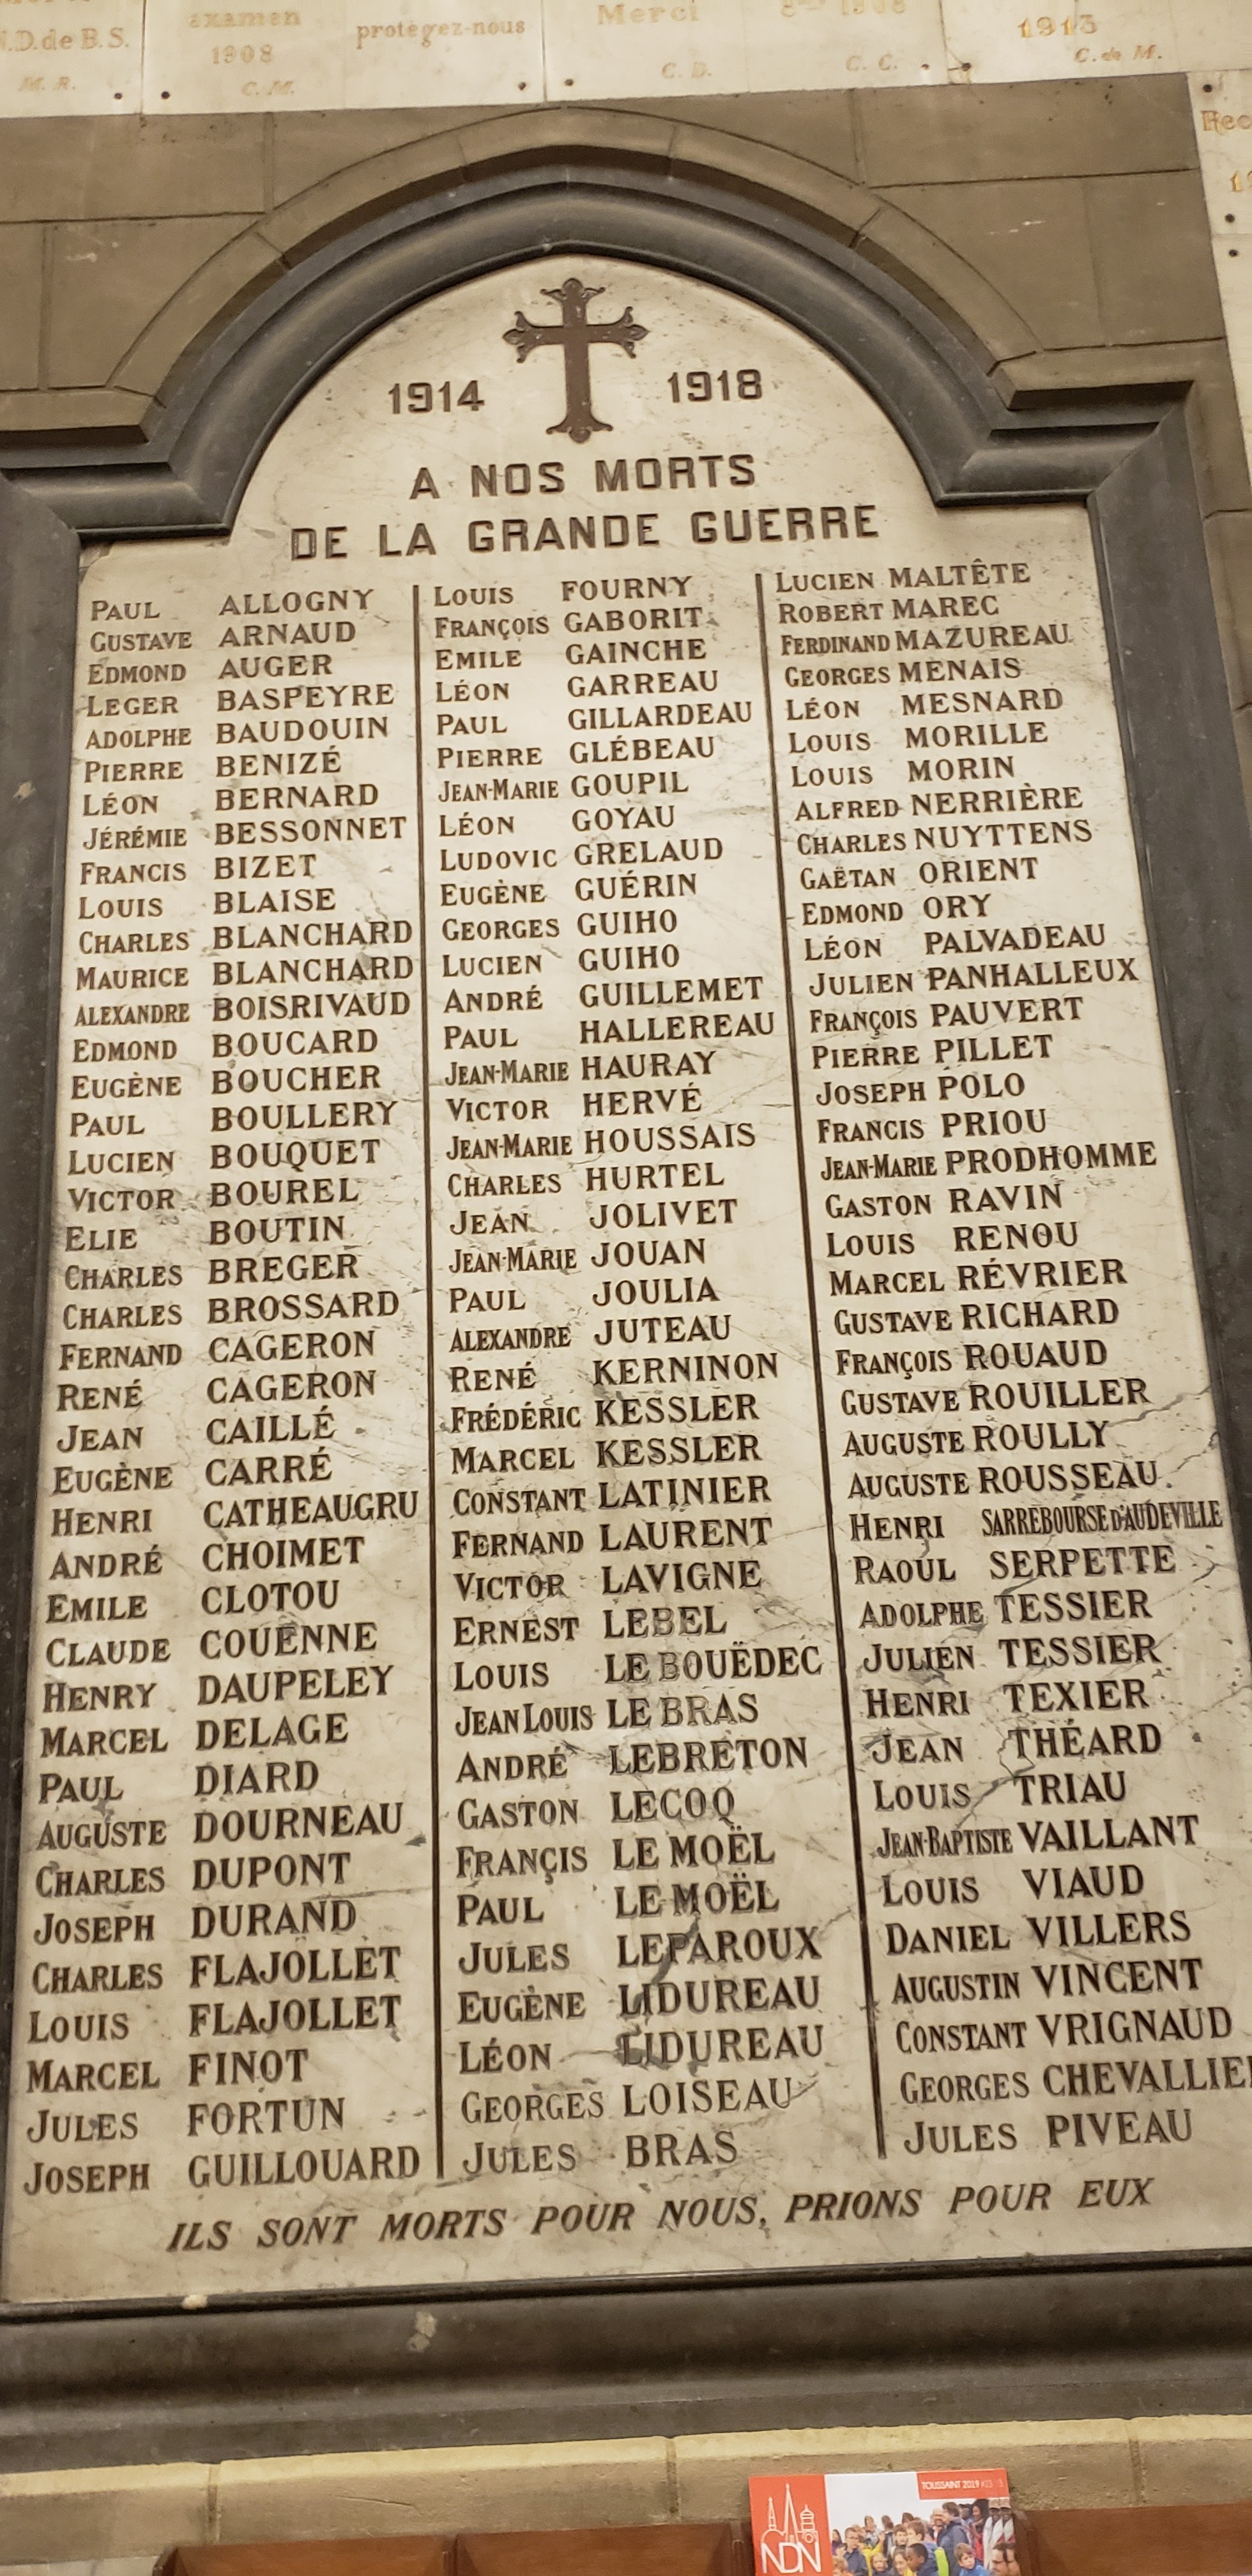 N.D. de B.S.
M. R.
examen
1908
C. M.
protégez-nous
Merci
C. D.
1908
C. C.
1913
C. de M.
1914 1918
A NOS MORTS
DE LA GRANDE GUERRE
PAUL ALLOGNY
GUSTAVE ARNAUD
EDMOND AUGER
LEGER BASPEYRE
ADOLPHE BAUDOUIN
PIERRE BENIZÉ
LÉON BERNARD
JÉRÉMIE BESSONNET
FRANCIS BIZET
LOUIS BLAISE
CHARLES BLANCHARD
MAURICE BLANCHARD
ALEXANDRE BOISRIVAUD
EDMOND BOUCARD
EUGÈNE BOUCHER
PAUL BOULLERY
LUCIEN BOUQUET
VICTOR BOUREL
ELIE BOUTIN
CHARLES BREGER
CHARLES BROSSARD
FERNAND CAGERON
RENÉ CAGERON
JEAN CAILLÉ
EUGÈNE CARRÉ
HENRI CATHEAUGRU
ANDRÉ CHOIMET
EMILE CLOTOU
CLAUDE COUËNNE
HENRY DAUPELEY
MARCEL DELAGE
PAUL DIARD
AUGUSTE DOURNEAU
CHARLES DUPONT
JOSEPH DURAND
CHARLES FLAJOLLET
LOUIS FLAJOLLET
MARCEL FINOT
JULES FORTUN
JOSEPH GUILLOUARD
LOUIS FOURNY
FRANÇOIS GABORIT
EMILE GAINCHE
LÉON GARREAU
PAUL GILLARDEAU
PIERRE GLÉBEAU
JEAN-MARIE GOUPIL
LÉON GOYAU
LUDOVIC GRELAUD
EUGÈNE GUÉRIN
GEORGES GUIHO
LUCIEN GUIHO
ANDRÉ GUILLEMET
PAUL HALLEREAU
JEAN-MARIE HAURAY
VICTOR HERVÉ
JEAN-MARIE HOUSSAIS
CHARLES HURTEL
JEAN JOLIVET
JEAN-MARIE JOUAN
PAUL JOULIA
ALEXANDRE JUTEAU
RENÉ KERNINON
FRÉDÉRIC KESSLER
MARCEL KESSLER
CONSTANT LATINIER
FERNAND LAURENT
VICTOR LAVIGNE
ERNEST LEBEL
LOUIS LE BOUËDEC
JEAN LOUIS LE BRAS
ANDRÉ LEBRETON
GASTON LECOQ
FRANÇIS LE MOËL
PAUL LE MOËL
JULES LEPAROUX
EUGÈNE LIDUREAU
LÉON LIDUREAU
GEORGES LOISEAU
JULES BRAS
LUCIEN MALTÊTE
ROBERT MAREC
FERDINAND MAZUREAU
GEORGES MENAIS
LÉON MESNARD
LOUIS MORILLE
LOUIS MORIN
ALFRED NERRIÈRE
CHARLES NUYTTENS
GAËTAN ORIENT
EDMOND ORY
LÉON PALVADEAU
JULIEN PANHALLEUX
FRANÇOIS PAUVERT
PIERRE PILLET
JOSEPH POLO
FRANCIS PRIOU
JEAN-MARIE PRODHOMME
GASTON RAVIN
LOUIS RENOU
MARCEL RÉVRIER
GUSTAVE RICHARD
FRANÇOIS ROUAUD
GUSTAVE ROUILLER
AUGUSTE ROULLY
AUGUSTE ROUSSEAU
HENRI SARREBOURSE D'AUDEVILLE
RAOUL SERPETTE
ADOLPHE TESSIER
JULIEN TESSIER
HENRI TEXIER
JEAN THÉARD
LOUIS TRIAU
JEAN-BAPTISTE VAILLANT
LOUIS VIAUD
DANIEL VILLERS
AUGUSTIN VINCENT
CONSTANT VRIGNAUD
GEORGES CHEVALLIE
JULES PIVEAU
ILS SONT MORTS POUR NOUS, PRIONS POUR EUX
TOUSSAINT 2019
NDN